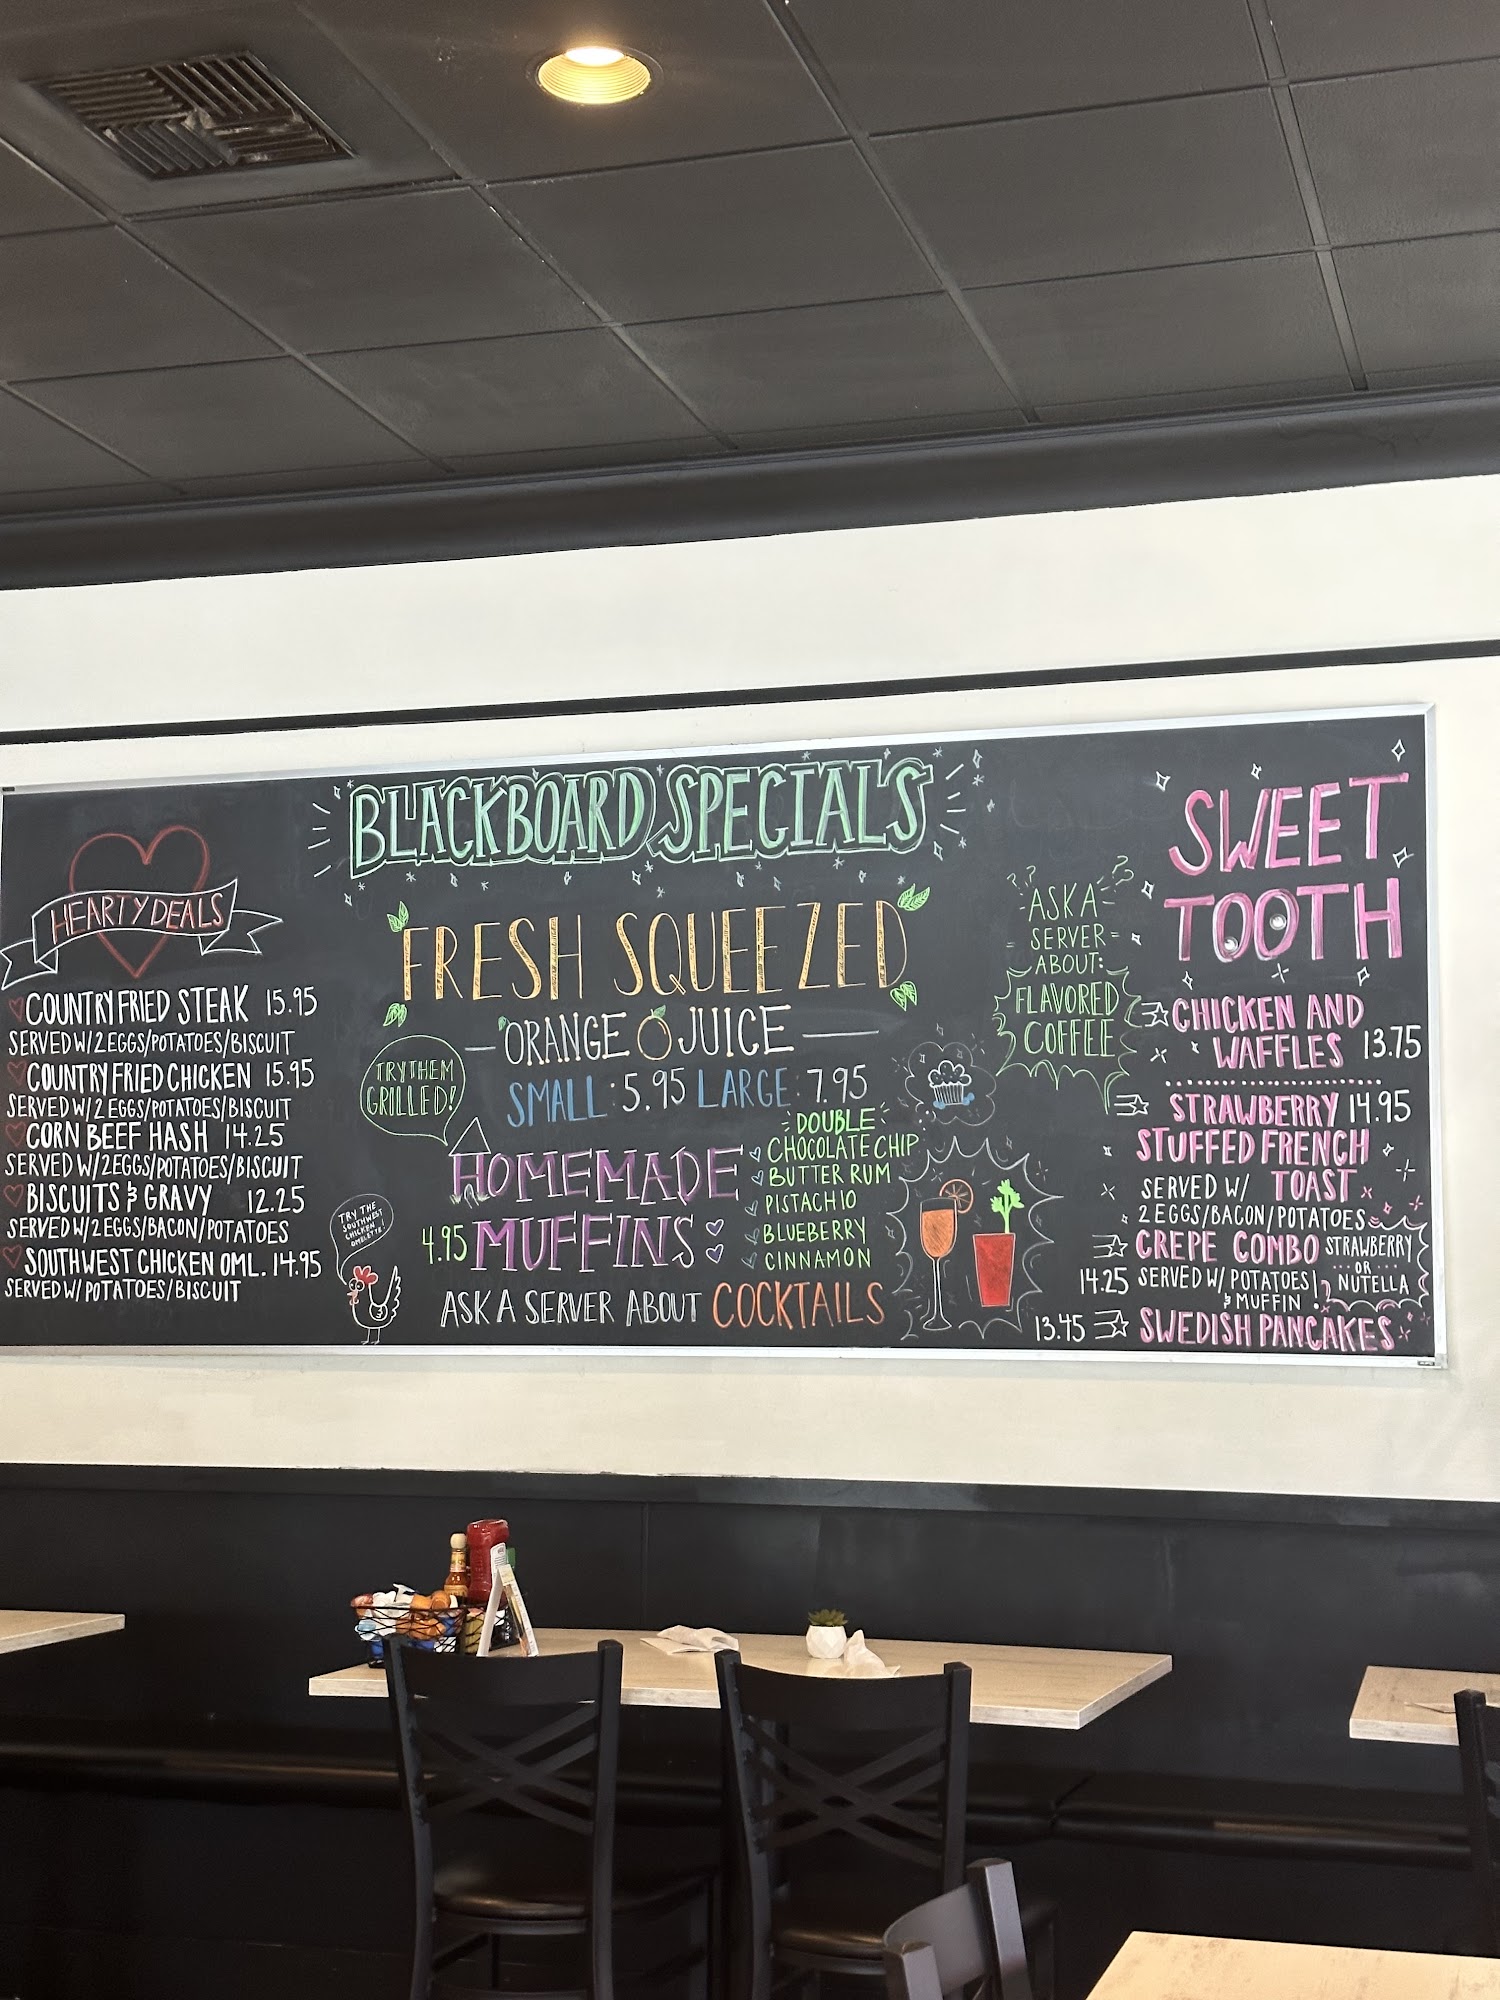 BLACKBOARD SPECIALS
HEARTY DEALS
COUNTRY FRIED STEAK 15.95
SERVED W/ 2 EGGS/POTATOES/BISCUIT
COUNTRY FRIED CHICKEN 15.95
SERVED W/ 2 EGGS/POTATOES/BISCUIT
CORN BEEF HASH 14.25
SERVED W/ 2 EGGS/POTATOES/BISCUIT
BISCUITS & GRAVY 12.25
SERVED W/ 2 EGGS/BACON/POTATOES
SOUTHWEST CHICKEN OML. 14.95
SERVED W/ POTATOES/BISCUIT
TRY THE
SOUTHWEST
CHICKEN
OMELETTE!
FRESH SQUEEZED
ORANGE JUICE
SMALL: 5.95 LARGE: 7.95
TRY THEM
GRILLED!
HOMEMADE
4.95 MUFFINS
DOUBLE
CHOCOLATE CHIP
BUTTER RUM
PISTACHIO
BLUEBERRY
CINNAMON
ASK A SERVER ABOUT COCKTAILS
?? ASK A ??
SERVER
ABOUT:
FLAVORED
COFFEE
SWEET
TOOTH
CHICKEN AND
WAFFLES 13.75
STRAWBERRY 14.95
STUFFED FRENCH
SERVED W/ TOAST
2 EGGS/BACON/POTATOES
CREPE COMBO
14.25 SERVED W/ POTATOES
& MUFFIN!
STRAWBERRY
OR
NUTELLA
13.45 SWEDISH PANCAKES